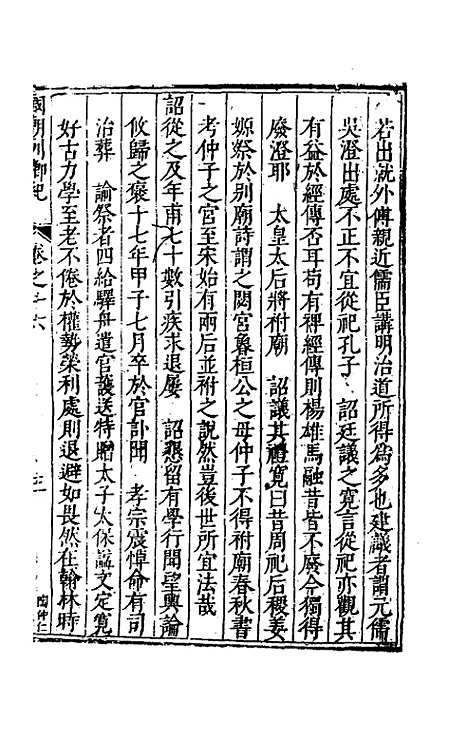 若出就外傅親近儒臣講明治道所得為多也建議者謂元儒
吳澄出處不正不宜從祀孔子 詔廷議之寬言從祀亦觀其
有益於經傳否耳苟有裨經傳則楊雄馬融昔皆不廢今獨得
廢澄耶 太皇太后將祔廟 詔議其禮寬曰昔周祀后稷姜
嫄祭於别廟詩謂之閟宮魯桓公之母仲子不得祔廟春秋書
考仲子之宮至宋始有兩后並祔之說然豈後世所宜法哉
詔從之及年甫七十數引疾求退屢 詔懇留有學行聞望輿論
攸歸之褒十七年甲子七月卒於官訃聞 孝宗震悼命有司
治葬 諭祭者四給驛舟遣官護送特贈太子太保謚文定寬
好古力學至老不倦於權勢榮利處則退避如畏然在翰林時
國朝列卿紀 卷之十六